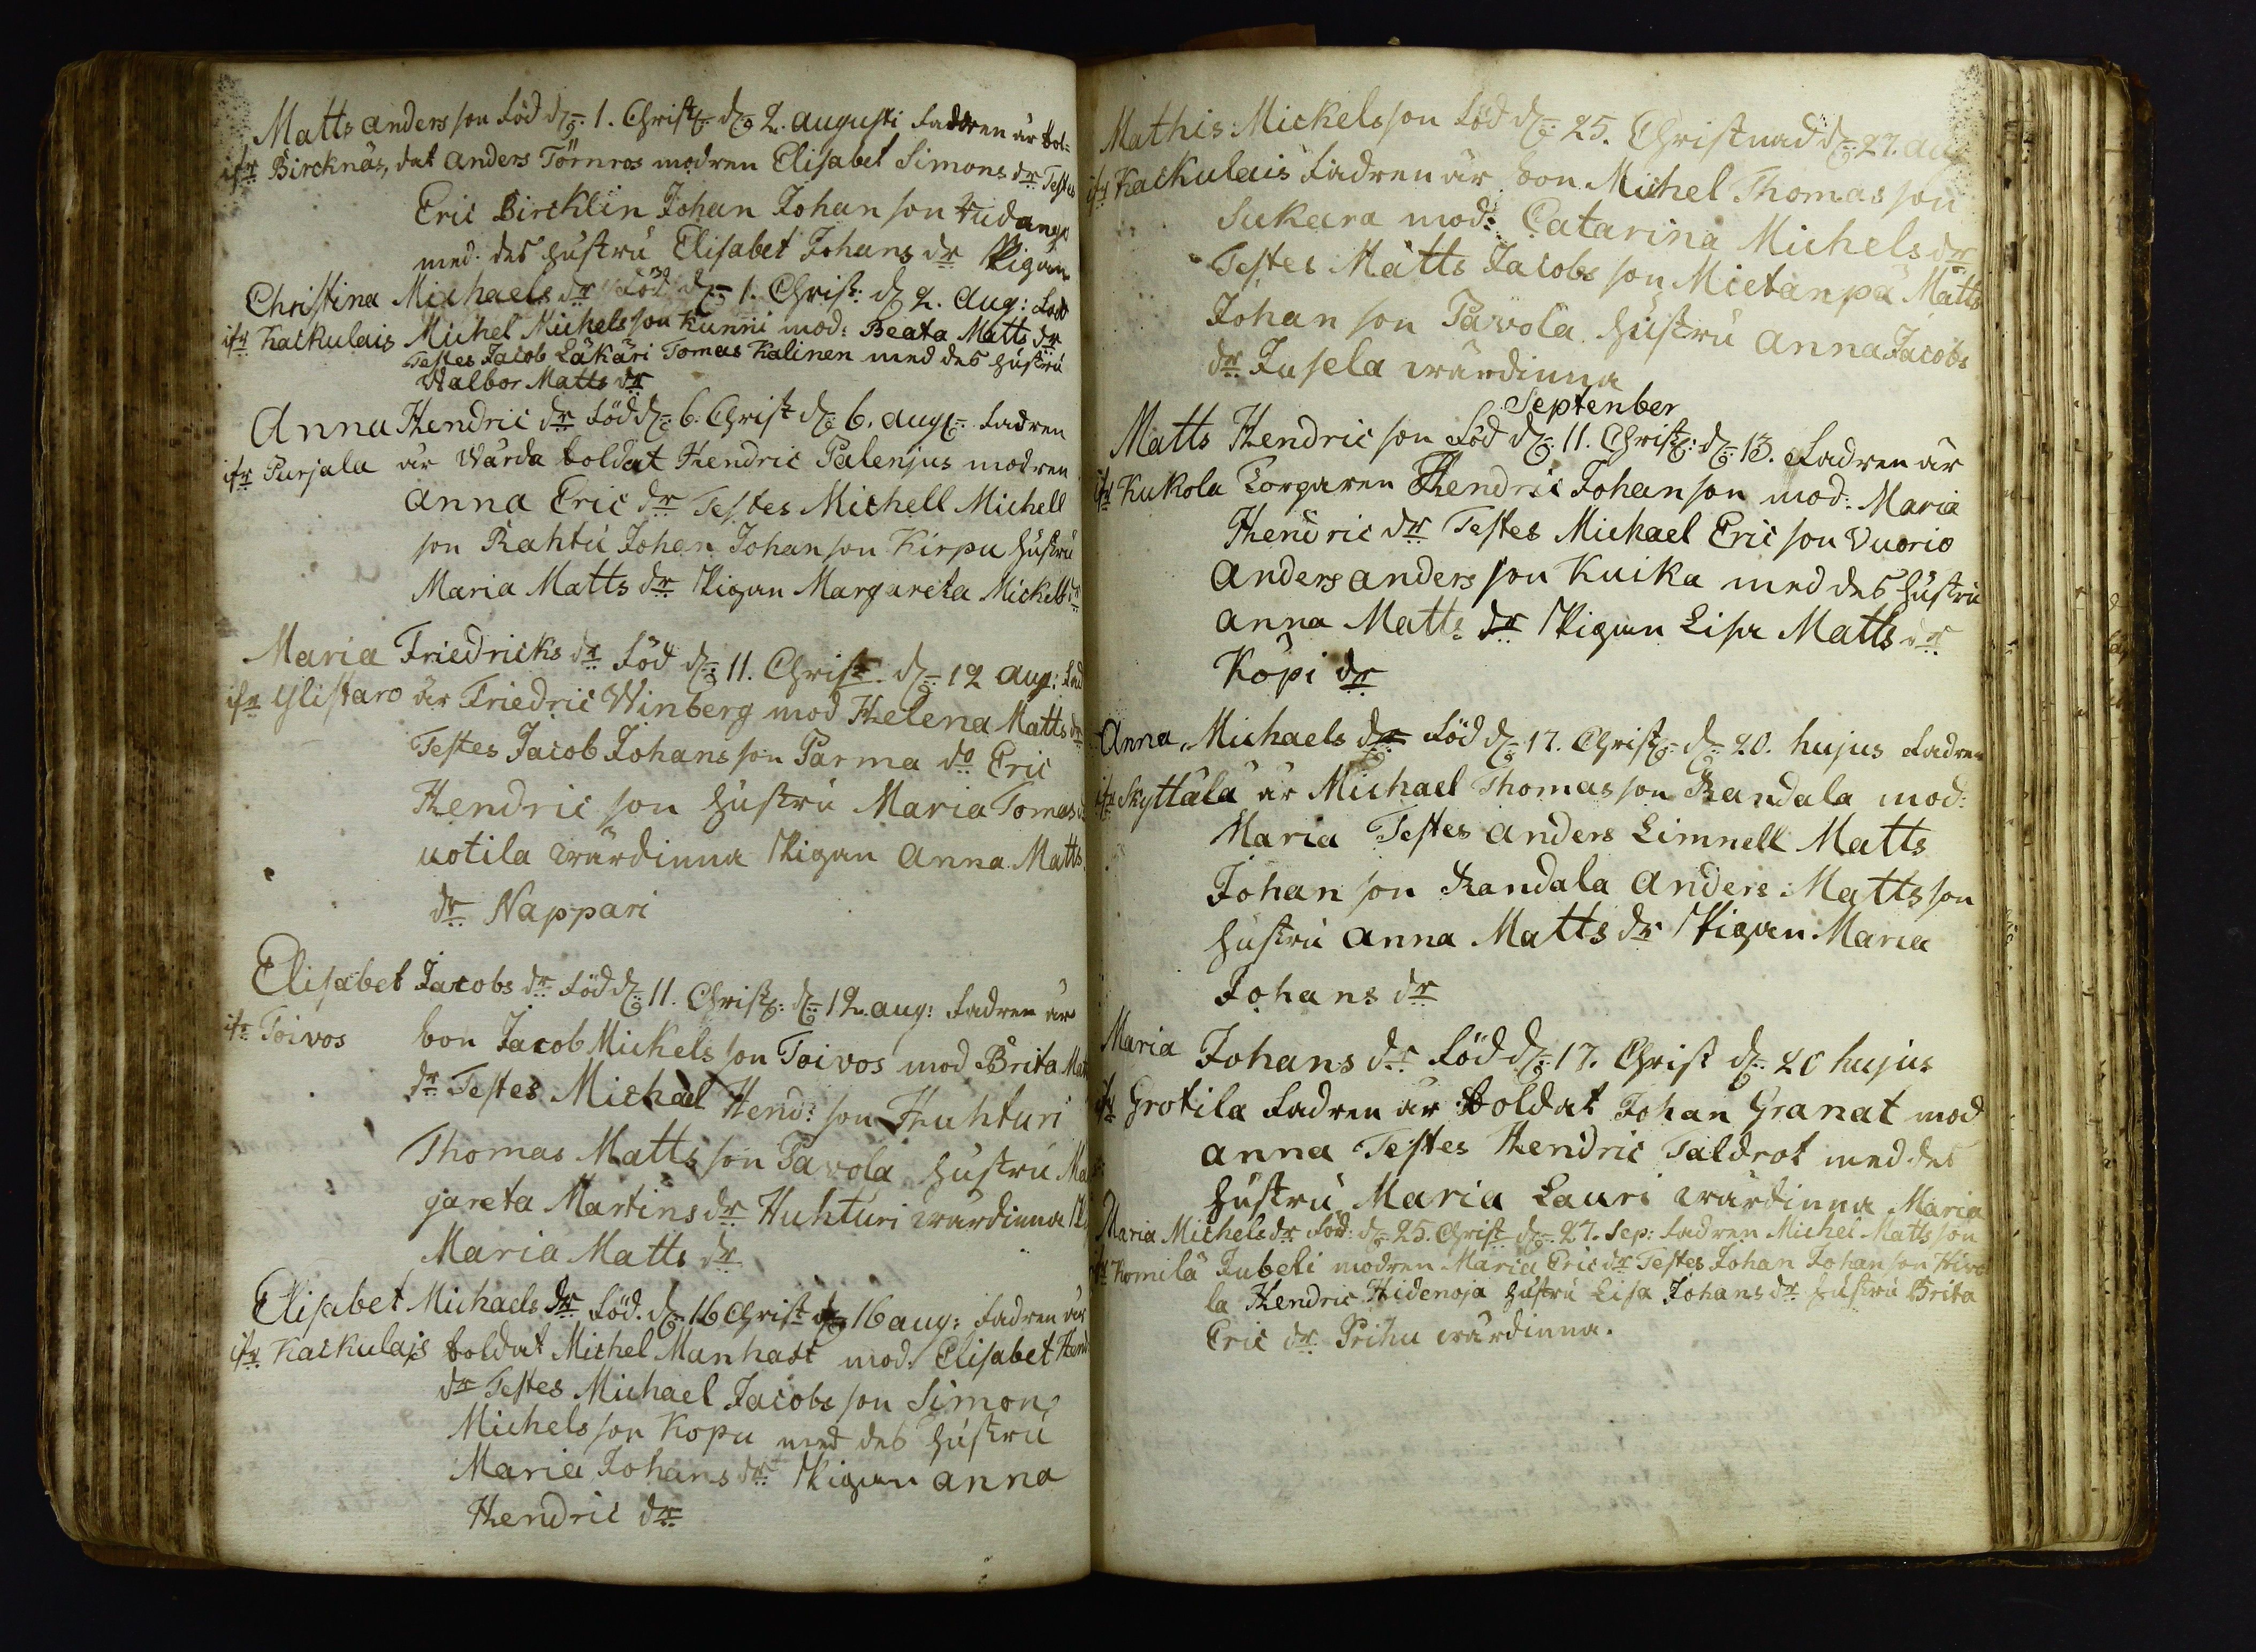 Matts anders son Född d: 1. Christ: d: 2. augusti Faddren är bol=
ifr Bircknäs, dat Anders Törnros modren Elisabet Simons dr Testes
Eric Bircklin Johan Johan son
med des hustru Elisabet Johans dr Pigan
Christina Michaels dr Född d: 1. Christ: d 2. Aug: Fad
ifr Kackulais Michel Michels son Kunni mod: Beata Matts dr
Testes Jacob Läkäri Tomas Kalinen med des hustru
Walbor Matts dr
Anna Hendric dr Född d: 6. Christ d: 6. aug: Fadren
ifr Purjala är Wärda Soldat Hendric Palenjus modren
Anna Eric dr Testes Michell Michell
son Rahtu Johan Johan son Kirpu hustru
Maria Matts dr Pigan Margareta Mickels dr
Maria Friedricks dr Född d: 11. Christ: d: 12 Aug: Fad
ifr Ylistaro är Friedric Winberg mod Helena Matts dr
Testes Jacob Johans son Parma do Eric
Hendric son hustru Maria Tomas
uotila wärdinna Pigan Anna Matts
dr Nappari
Elisabet Jacobs dr Född d: 11. Christ: d: 12. aug: Fadren är
ifr Toivos bon Jacob Mickels son Toivos mod Brita Matts
dr Testes Michael Hend: son Huhturi
Thomas Matts son Pavola hustru Mar
gareta Martins dr Huhturi wärdinna
Maria Matts dr
Elisabet Michaels dr Föd. d: 16 Christ d: 16 aug: Fadren är
ifr Kackulais Soldat Michel Manhaft mod. Elisabet Hend:
dr Testes Michael Jacobs son Simon
Michels son Kopu med des hustru
Maria Johans dr Pigan anna
Hendric dr
Mathis Mickelsson Född d: 25. Christnad d: 27. aug
ifr Kackulais Fadren är bon Michel Thomas son
Sukara mod: Catarina Michels dr
Testes Matts Jacobs son Mietanpä Matts
Johan son Pavola hustru Anna Jacobs
dr Jusela wärdinna
September
Matts Hendric son Född d: 11. Christ: d: 13. Fadren är
ifr Kukola Torparen Hendric Johan son mod: Maria
Hendric dr Testes Michael Eric son Vuorio
Anders anders son Kuika med des hustru
Anna Matts dr Pigan Lisa Matts dr
Köpi dr
Anna Michaels dr Född d: 17. Christ: d: 20. hujus Fadren
ifr Skyttälä är Michael Thomas son Randala mod:
Maria Testes anders Limnell Matts
Johan son Randala Anders Matts son
hustru Anna Matts dr Pigan Maria
Johans dr
Maria Johans dr Född d: 17. Christ d: 20 hujus
ifr Grotila Fadren är Soldat Johan Granat mod
anna Testes Hendric Taldrot med des
hustru Maria Lauri wärdinna Maria
Maria Michels dr Föd: d: 25. Christ d: 27. Sep: Fadren Michel Matts son
ifr Komilä Jubeli modren Maria Eric dr Testes Johan Johan son Hiro
la Hendric Hidenoja hustru Lisa Johans dr hustru Brita
Eric dr Prihu wärdinna.